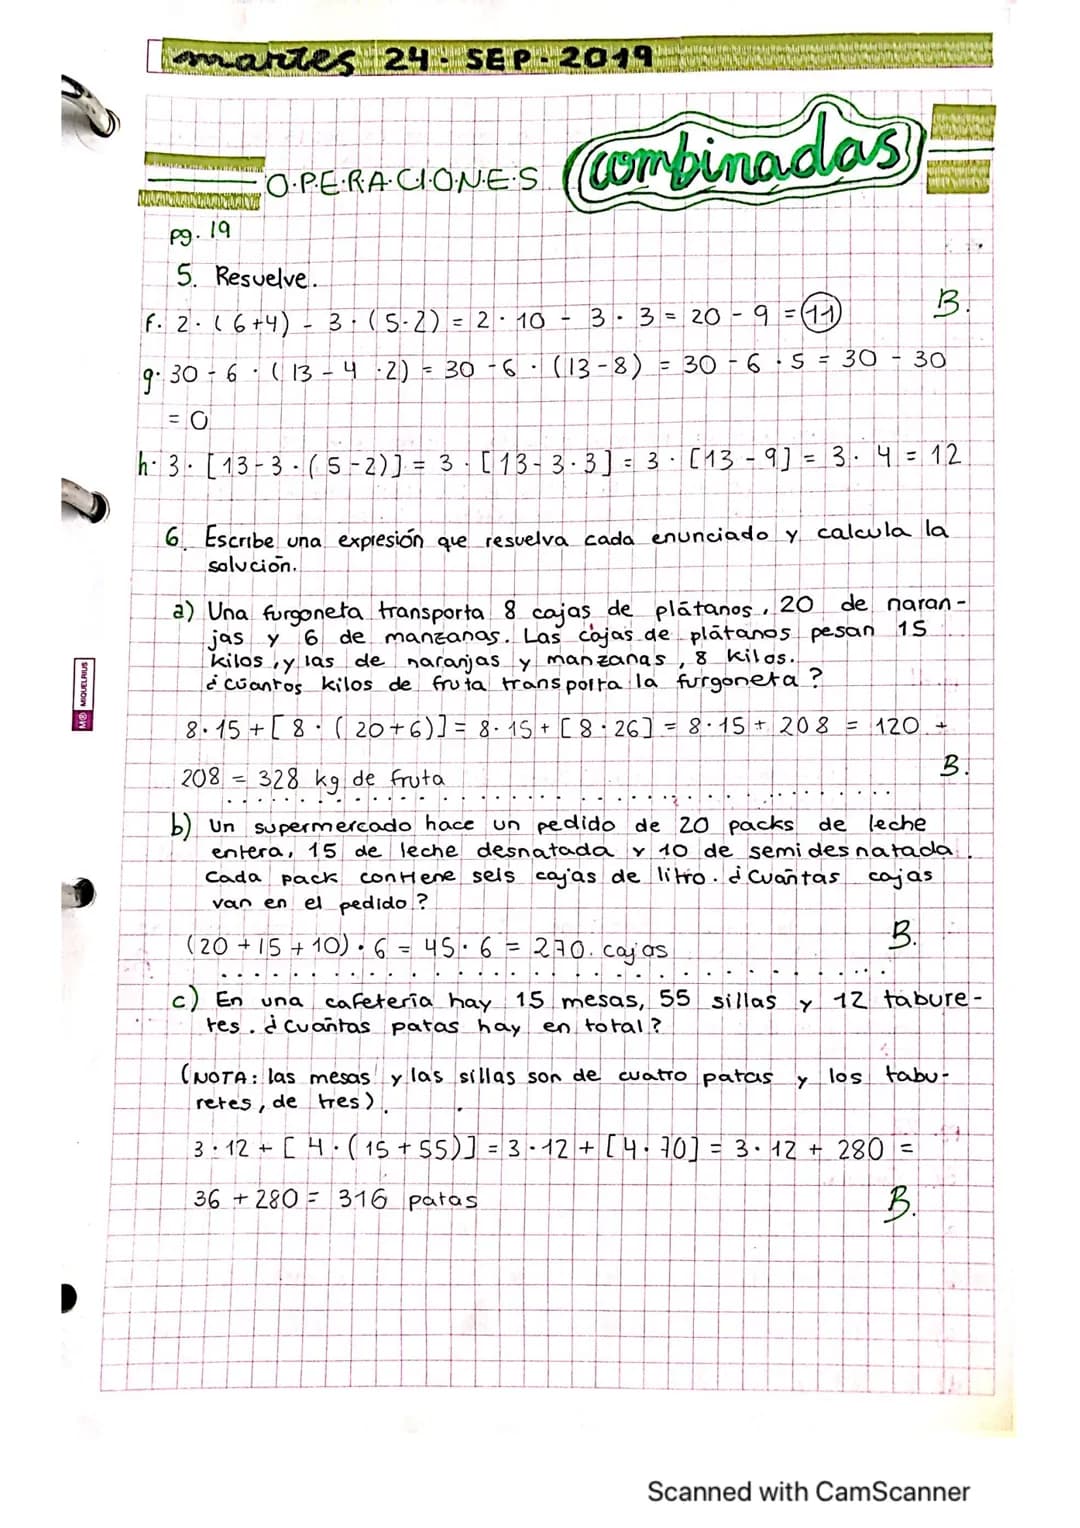 martes 24. SEP. 2019
O.P.E.R.A.C.I.O.N.E.S. combinadas
pg. 19
5. Resuelve.
f. 2 · (6+4) - 3 · (5-2) = 2 · 10 - 3 · 3 = 20 - 9 = 11 B.
g. 30 - 6 · (13 - 4 · 2) = 30 - 6 · (13 - 8) = 30 - 6 · 5 = 30 - 30
= 0
h. 3 · [13-3 · (5-2)] = 3 · [13-3·3] = 3 · [13 - 9] = 3 · 4 = 12
6. Escribe una expresión que resuelva cada enunciado y calcula la
solución.
a) Una furgoneta transporta 8 cajas de plátanos, 20 de naran-
jas y 6 de manzanas. Las cajas de plátanos pesan 15
kilos, y las de naranjas y manzanas, 8 kilos.
¿cuántos kilos de fruta transporta la furgoneta?
8 · 15 + [8 · (20+6)] = 8 · 15 + [8 · 26] = 8 · 15 + 208 = 120 +
208 = 328 kg de fruta B.
b) Un supermercado hace un pedido de 20 packs de leche
entera, 15 de leche desnatada y 10 de semidesnatada.
Cada pack contiene seis cajas de litro. ¿Cuántas cajas
van en el pedido?
(20 + 15 + 10) · 6 = 45 · 6 = 270. cajas B.
c) En una cafetería hay 15 mesas, 55 sillas y 12 tabure-
tes. ¿Cuántas patas hay en total?
(NOTA: las mesas y las sillas son de cuatro patas y los tabu-
retes, de tres).
3 · 12 + [4 · (15 + 55)] = 3 · 12 + [4 · 70] = 3 · 12 + 280 =
36 + 280 = 316 patas B.
MR MIQUELRIUS
Scanned with CamScanner